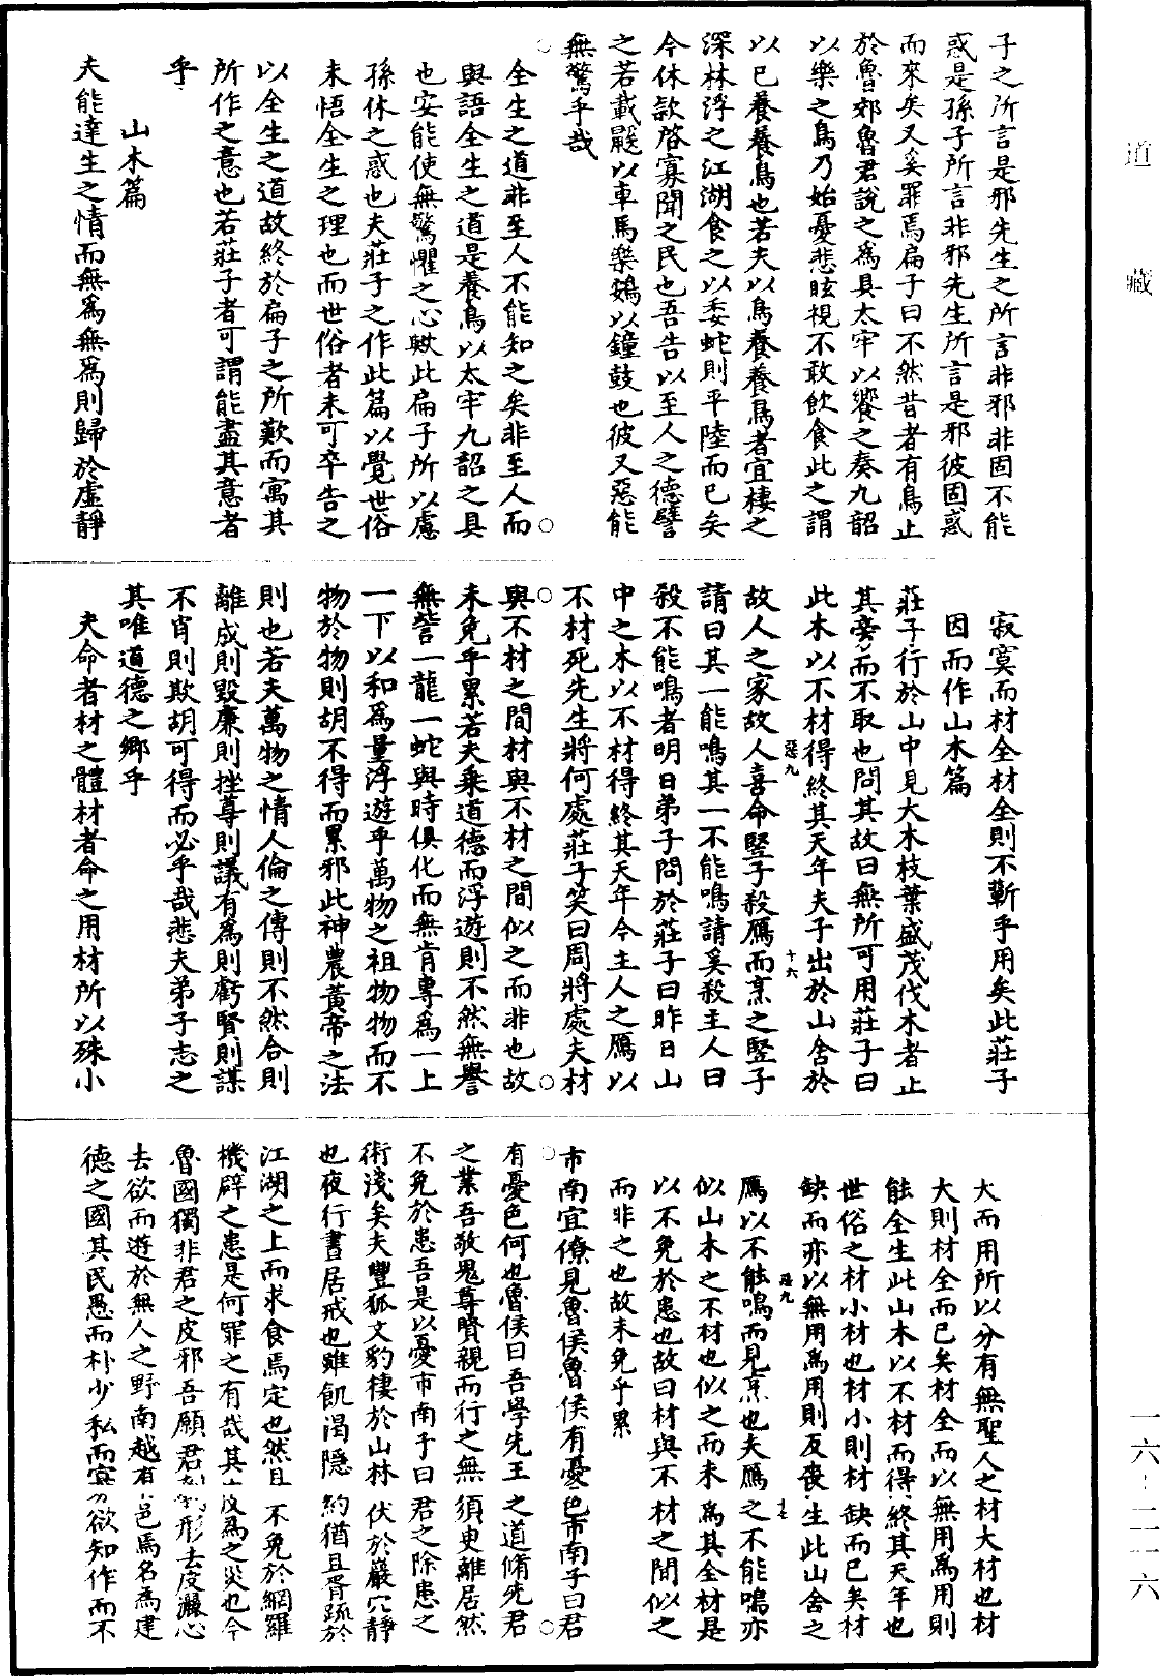 子之所言是邪先生之所言非邪非固不能
惑是孫子所言非邪先生所言是邪彼固惑
而來矣又奚罪焉扁子曰不然昔者有鳥止
於魯郊魯君說之為具太牢以饗之奏九韶
以樂之鳥乃始憂悲眩視不敢飲食此之謂
以已養養鳥也若夫以鳥養養鳥者宜棲之
深林浮之江湖食之以委蛇則平陸而已矣
今休款啓寡聞之民也吾告以至人之德譬
之若載鼷以車馬樂鴳以鐘鼓也彼又惡能
無驚乎哉
全生之道非至人不能知之矣非至人而
與語全生之道是養鳥以太牢九韶之具
也安能使無驚懼之心歟此扁子所以慮
孫休之惑也夫莊子之作此篇以覺世俗
未悟全生之理也而世俗者未可卒告之
以全生之道故終於扁子之所歎而寓其
所作之意也若莊子者可謂能盡其意者
乎
山木篇
夫能達生之情而無為無為則歸於虛靜
寂寞而材全材全則不蘄乎用矣此莊子
因而作山木篇
莊子行於山中見大木枝葉盛茂伐木者止
其旁而不取也問其故曰無所可用莊子曰
此木以不材得終其天年夫子出於山舍於
故人之家故人喜命豎子殺鴈而烹之豎子
請曰其一能鳴其一不能鳴請奚殺主人曰
殺不能鳴者明日弟子問於莊子曰昨日山
中之木以不材得終其天年今主人之鴈以
不材死先生將何處莊子笑曰周將處夫材
與不材之間材與不材之間似之而非也故
未免乎累若夫乘道德而浮遊則不然無譽
無訾一龍一蛇與時俱化而無肯專為一上
一下以和為量浮遊乎萬物之祖物物而不
物於物則胡不得而累邪此神農黃帝之法
則也若夫萬物之情人倫之傳則不然合則
離成則毀廉則挫尊則議有為則虧賢則謀
不肖則欺胡可得而必乎哉悲夫弟子志之
其唯道德之鄉乎
夫命者材之體材者命之用材所以殊小
大而用所以分有無聖人之材大材也材
大則材全而已矣材全而以無用為用則
能全生此山木以不材而得終其天年也
世俗之材小材也材小則材缺而已矣材
缺而亦以無用為用則反喪生此山舍之
鴈以不能鳴而見烹也夫鴈之不能鳴亦
似山木之不材也似之而未為其全材是
以不免於患也故曰材與不材之間似之
而非之也故未免乎累
市南宜僚見魯侯魯侯有憂色市南子曰君
有憂色何也魯侯曰吾學先王之道脩先君
之業吾敬鬼尊賢親而行之無須臾離居然
不免於患吾是以憂市南子曰君之除患之
術淺矣夫豐狐文豹棲於山林伏於巖穴靜
也夜行晝居戒也雖飢渴隱約猶且胥疏於
江湖之上而求食焉定也然且不免於網羅
機辟之患是何罪之有哉其皮為之災也今
魯國獨非君之皮邪吾願君刳形去皮灑心
去欲而遊於無人之野南越有邑焉名為建
德之國其民愚而朴少私而寡欲知作而不
道藏
一六-二一六